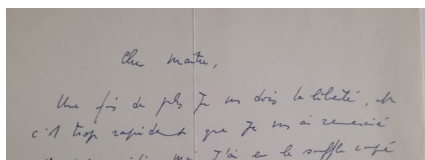 Cher Maître,
Une fois de plus je vous dois la liberté, et
c'est trop rapidement que je vous ai remercié
mais j'ai eu le souffle coupé